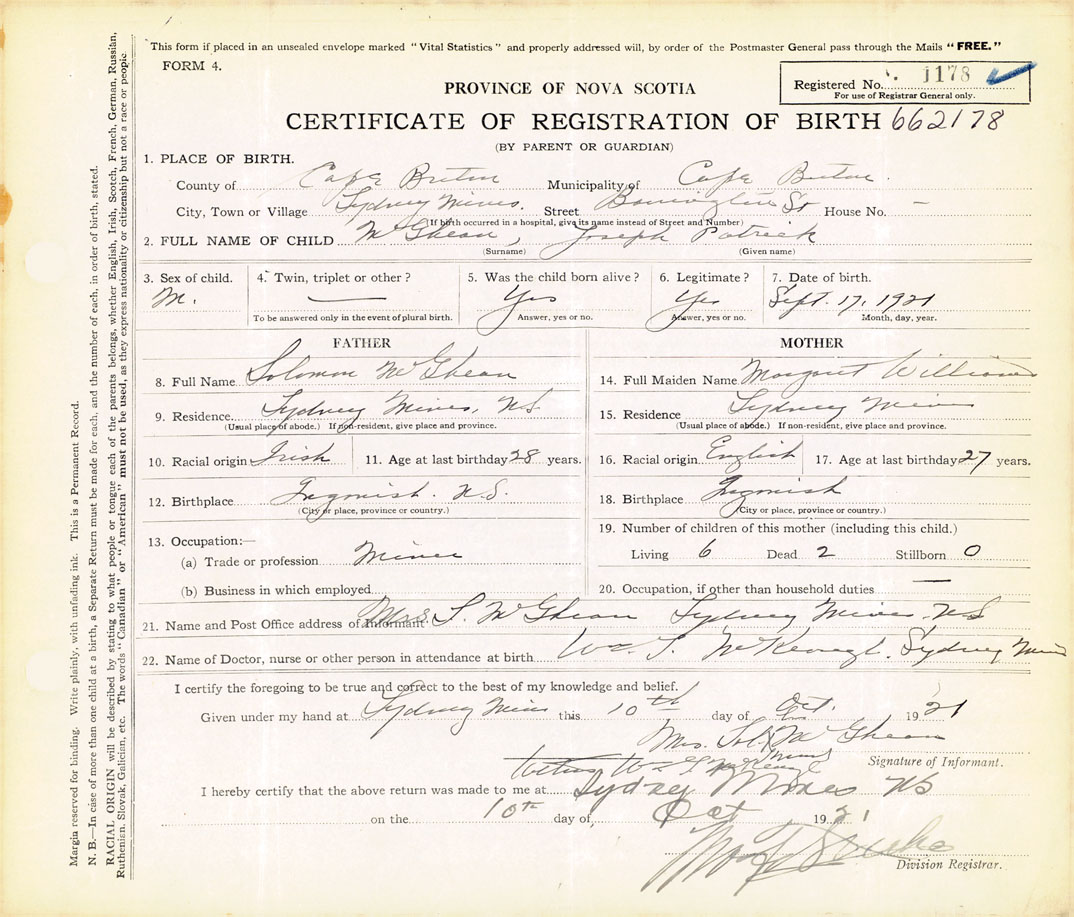 This form if placed in an unsealed envelope marked "Vital Statistics" and properly addressed will, by order of the Postmaster General pass through the Mails "FREE."
FORM 4.
Registered No. 1178
For use of Registrar General only.
PROVINCE OF NOVA SCOTIA
CERTIFICATE OF REGISTRATION OF BIRTH 662178
(BY PARENT OR GUARDIAN)
1. PLACE OF BIRTH.
County of Cape Breton Municipality of Cape Breton
City, Town or Village Sydney Mines. Street St House No. –
(If birth occurred in a hospital, give its name instead of Street and Number)
2. FULL NAME OF CHILD McGhean, Joseph Patrick
(Surname) (Given name)
3. Sex of child. 4. Twin, triplet or other? 5. Was the child born alive? 6. Legitimate? 7. Date of birth.
M. — Yes Yes Sept. 17, 1921
To be answered only in the event of plural birth. Answer, yes or no. Answer, yes or no. Month, day, year.
FATHER
8. Full Name Solomon McGhean
9. Residence Sydney Mines, N.S.
(Usual place of abode.) If non-resident, give place and province.
10. Racial origin Irish 11. Age at last birthday 28 years.
12. Birthplace Ingonish. N.S.
(City or place, province or country.)
13. Occupation:—
(a) Trade or profession Miner
(b) Business in which employed
MOTHER
14. Full Maiden Name Margaret Williams
15. Residence Sydney Mines
(Usual place of abode.) If non-resident, give place and province.
16. Racial origin English 17. Age at last birthday 27 years.
18. Birthplace Ingonish
(City or place, province or country.)
19. Number of children of this mother (including this child.)
Living 6 Dead 2 Stillborn 0
20. Occupation, if other than household duties —
21. Name and Post Office address of Informant Mrs. S. McGhean Sydney Mines, N.S
22. Name of Doctor, nurse or other person in attendance at birth Wm. S. McKeough. Sydney Mines
I certify the foregoing to be true and correct to the best of my knowledge and belief.
Given under my hand at Sydney Mines this 10th day of Oct. 1921
Mrs. Sol McGhean
Signature of Informant.
Witness
I hereby certify that the above return was made to me at Sydney Mines NS
on the 10th day of Oct 1921
Division Registrar.
Margin reserved for binding. Write plainly, with unfading ink. This is a Permanent Record.
N. B.—In case of more than one child at a birth, a Separate Return must be made for each, and the number of each, in order of birth, stated.
RACIAL ORIGIN will be described by stating to what people or tongue each of the parents belongs, whether English, Irish, Scotch, French, German, Russian,
Ruthenian, Slovak, Galician, etc. The words "Canadian" or "American" must not be used, as they express nationality or citizenship but not a race or people